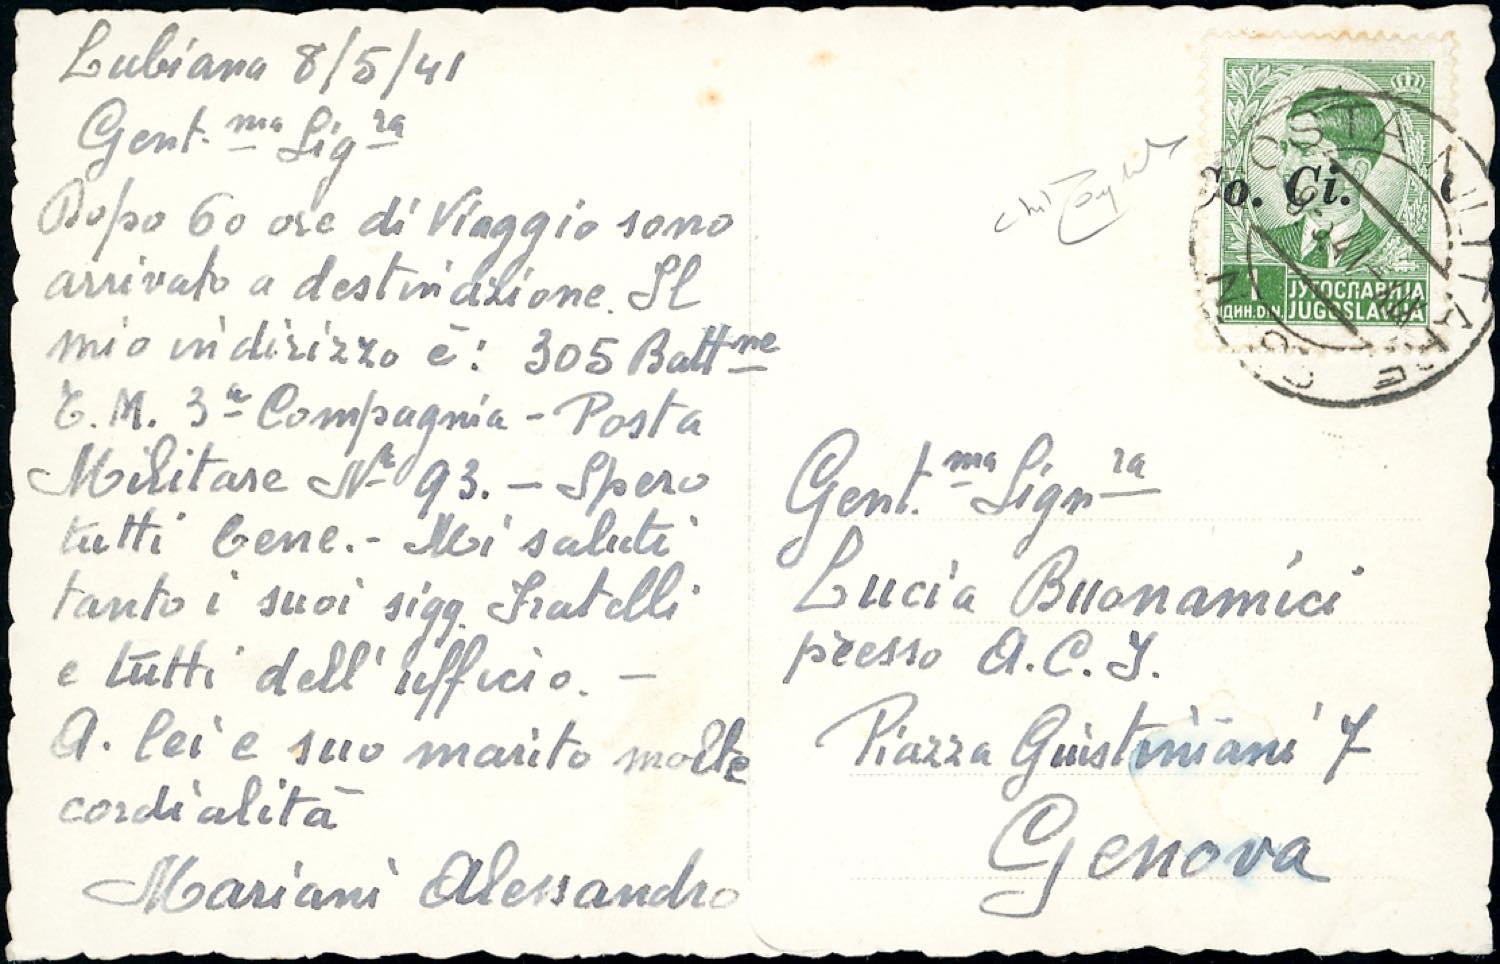 Lubiana 8/5/41
Gent.ma Sigra
Dopo 60 ore di viaggio sono
arrivato a destinazione. Il
mio indirizzo è: 305 Battne
T.M. 3a Compagnia - Posta
Militare No 93. - Spero
tutti bene. - Mi saluti
tanto i suoi sigg. Fratelli
e tutti dell'ufficio. -
A. lei e suo marito molte
cordialità
Mariani Alessandro
Co. Ci.
1
ДИН. DIN.
ЈУГОСЛАВИЈА
JUGOSLAVIJA
POSTA MILITARE
Gent.ma Signra
Lucia Buonamici
presso A.C.I.
Piazza Giustiniani 7
Genova